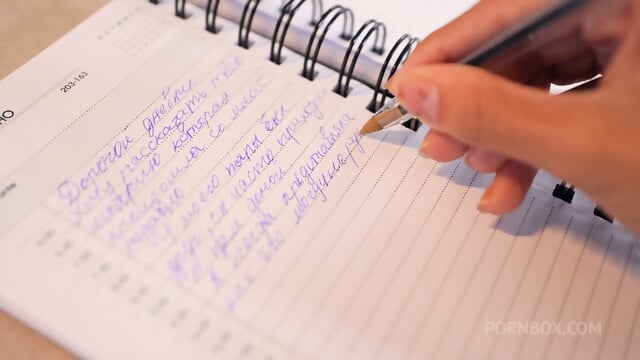 203-163
Дорогой дневник
хочу рассказать тебе
историю которая
произошла со мной
недавно
У моего парня был
друг он часто приходил
домой
я всегда представляла
как его могучие ру
PORNBOX.COM